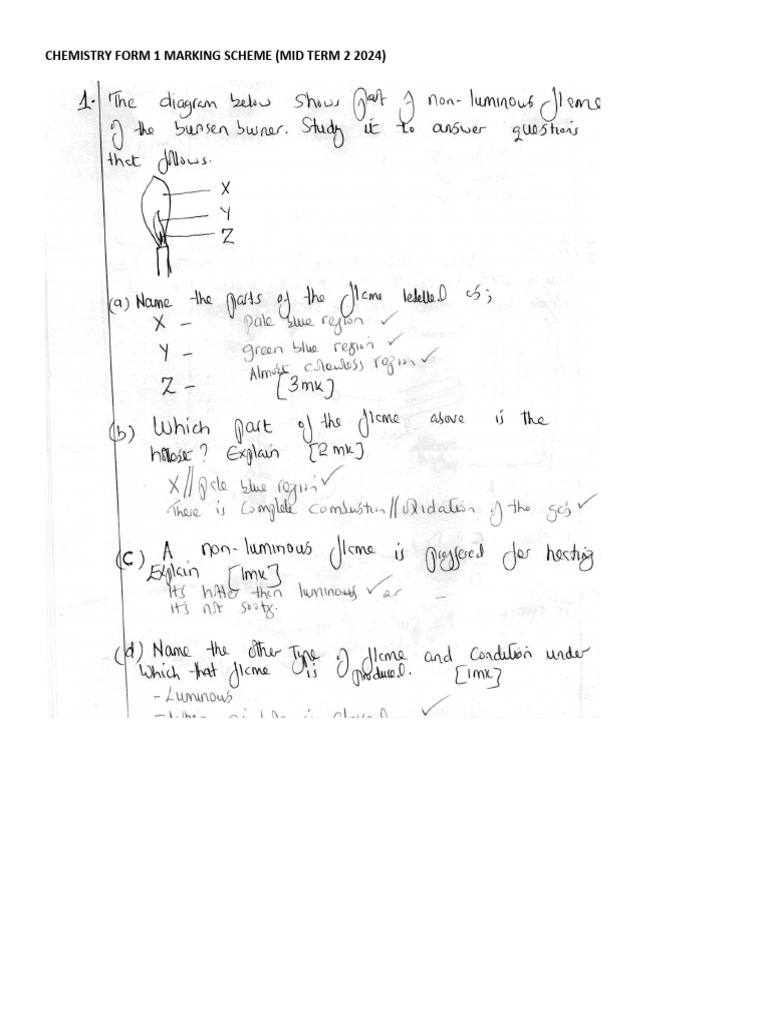 CHEMISTRY FORM 1 MARKING SCHEME (MID TERM 2 2024)
1. The diagram below shows part of non-luminous flame
of the bunsen burner. Study it to answer questions
that follows.
X
Y
Z
(a) Name the parts of the flame labelled as;
X - pale blue region ✓
Y - green blue region ✓
Almost colourless region ✓
Z - [3mk]
(b) Which part of the flame above is the
hottest? Explain [2mk]
X // pale blue region ✓
There is complete combustion // oxidation of the gas ✓
(C) A non-luminous flame is preffered for heating
Explain [1mk]
It's hotter than luminous ✓ or
it's not sooty.
(d) Name the other Type of flame and Condition under
which that flame is produced. [1mk]
- Luminous